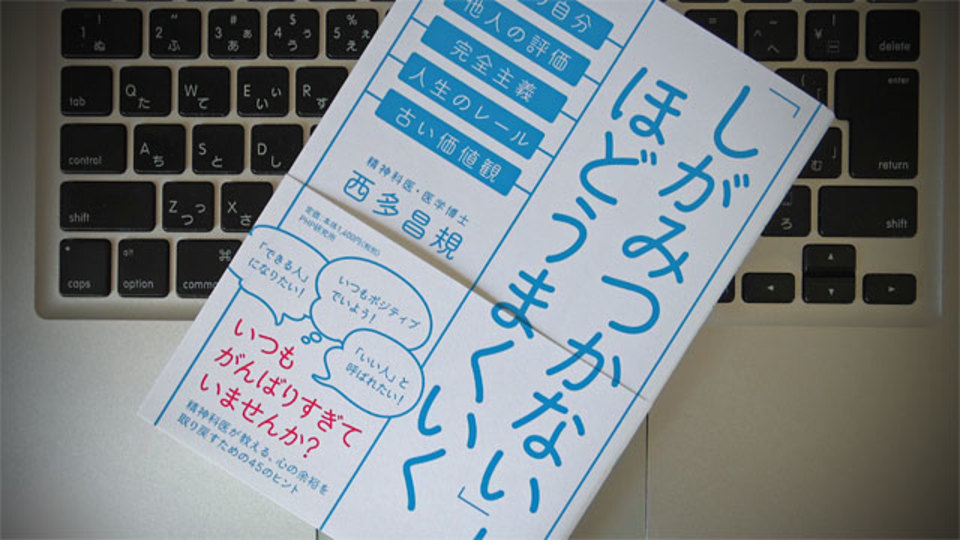 「しがみつかない」
ほどうまくいく
自分
他人の評価
完全主義
人生のレール
古い価値観
精神科医・医学博士
西多昌規
定価:本体1,400円(税別)
PHP研究所
「できる人」
になりたい!
いつもポジティブ
でいよう!
「いい人」と
呼ばれたい!
いつも
がんばりすぎて
いませんか?
精神科医が教える、心の余裕を
取り戻すための45のヒント
1 ぬ
2 ふ
# 3 ぁ あ
$ 4 ぅ う
% 5 ぇ え
delete
tab
Q た
W て
E ぃ い
R す
enter
return
control
A ち
S と
D し
shift
Z っ つ
X さ
shift
caps
alt
option
⌘